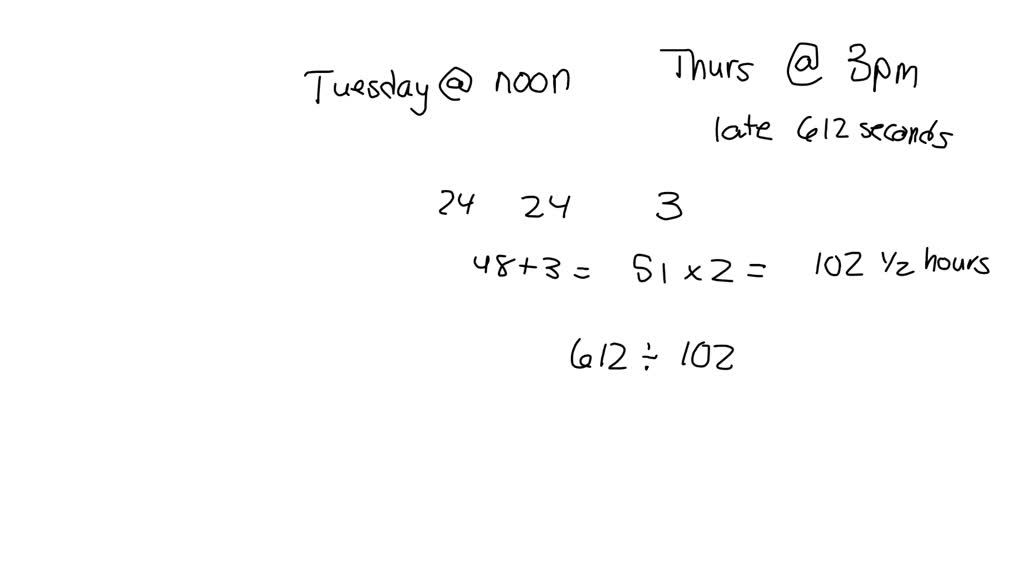 Tuesday @ noon Thurs @ 3pm
late 612 seconds
24 24 3
48 + 3 = 51 x 2 = 102 1/2 hours
612 ÷ 102